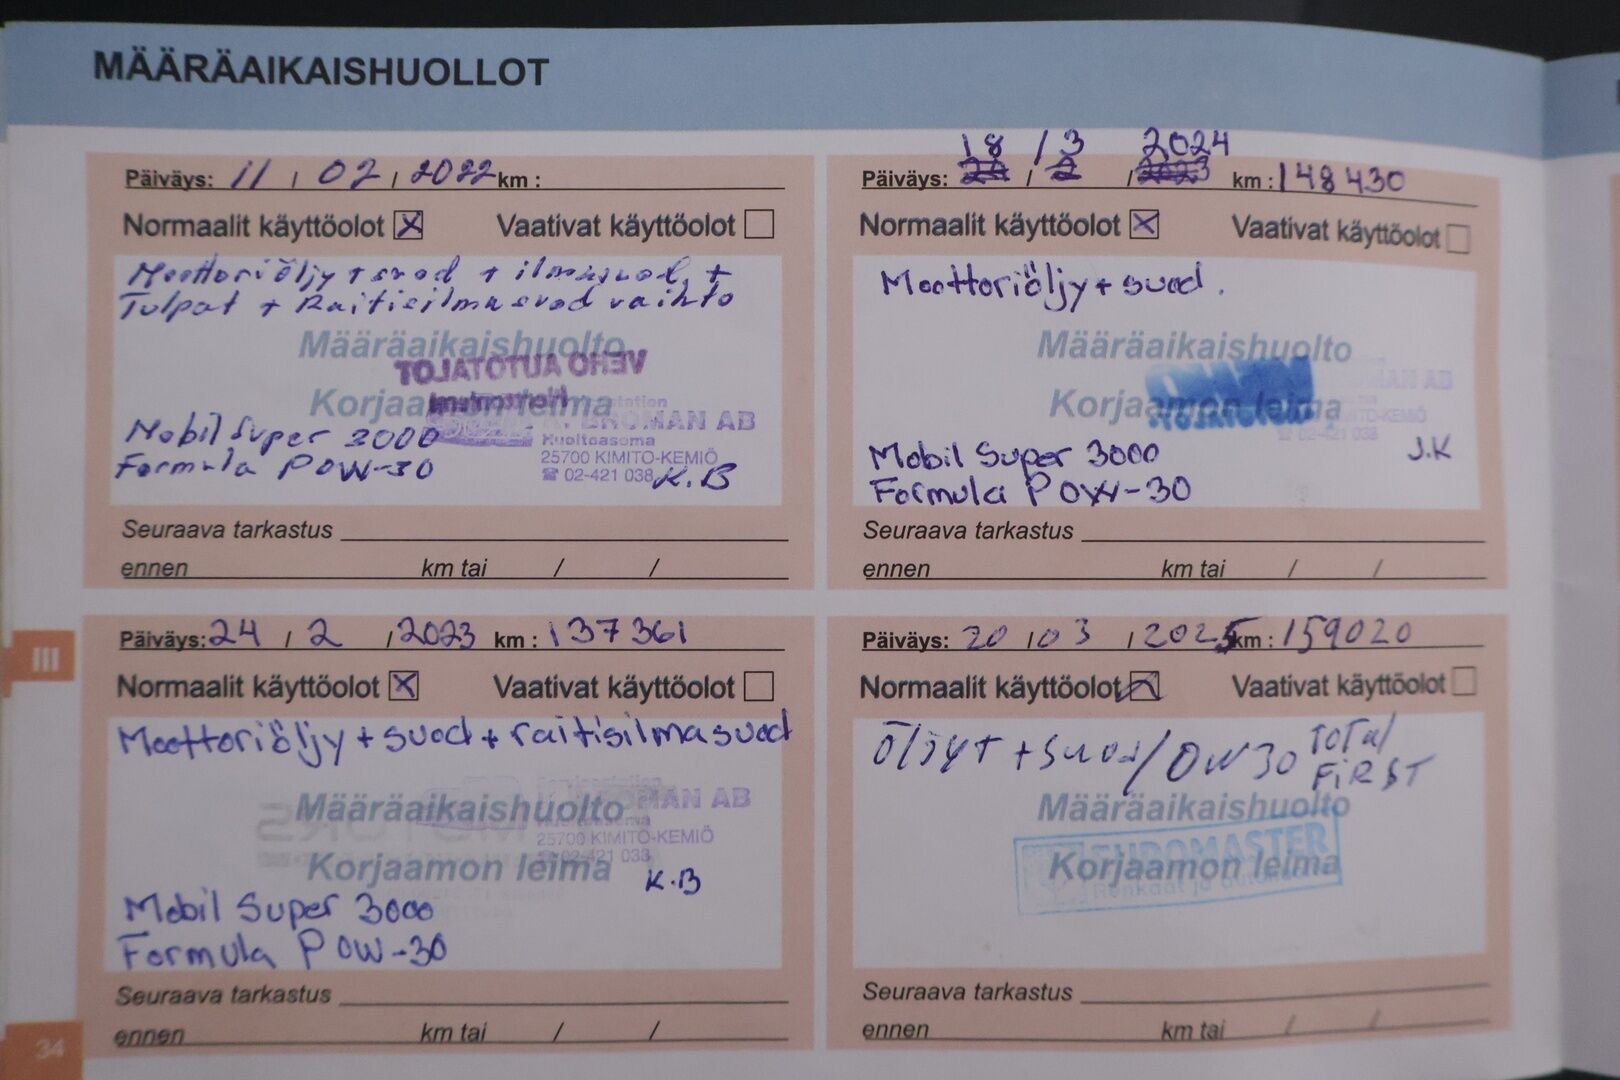 MÄÄRÄAIKAISHUOLLOT
Päiväys: 11 / 02 / 2022 km :
Normaalit käyttöolot X Vaativat käyttöolot
Moottoriöljy + suod + ilmasuod. +
Tulpat + Raitisilmasuod vaihto
Määräaikaishuolto
VEHO AUTOTALOT
Korjaamon leima
BROMAN AB
Huoltoasema
25700 KIMITO-KEMIÖ
☎ 02-421 038 K.B
Mobil Super 3000
Formula P 0W-30
Seuraava tarkastus
ennen km tai / /
18 / 3 2024
Päiväys: / 2 / 2023 km : 148430
Normaalit käyttöolot X Vaativat käyttöolot
Moottoriöljy + suod.
Määräaikaishuolto
MAN AB
Korjaamon leima
02-421 038
Mobil Super 3000 J.K
Formula P 0W-30
Seuraava tarkastus
ennen km tai / /
III
Päiväys: 24 / 2 / 2023 km : 137361
Normaalit käyttöolot X Vaativat käyttöolot
Moottoriöljy + suod + raitisilmasuod
Määräaikaishuolto
MAN AB
25700 KIMITO-KEMIÖ
Korjaamon leima
K.B
Mobil Super 3000
Formula P 0W-30
Seuraava tarkastus
ennen km tai / /
Päiväys: 20 / 03 / 2025 km : 159020
Normaalit käyttöolot Vaativat käyttöolot
Öljyt + suod / 0W30 Total
FiRST
Määräaikaishuolto
EUROMASTER
Korjaamon leima
Renkaat ja
Seuraava tarkastus
ennen km tai / /
34